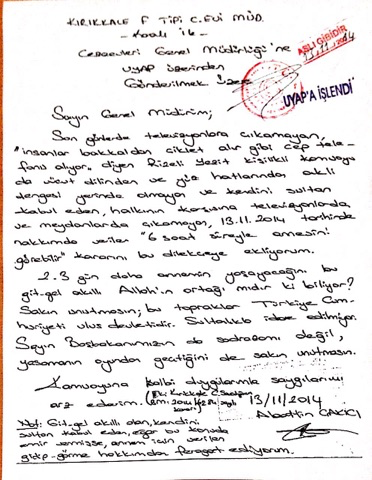 KIRIKKALE F TİPİ C.EVİ MÜD.
Cezaevleri Genel Müdürlüğü'ne
UYAP üzerinden
Gönderilmek Üzere
ASLI GİBİDİR
13.11.2014
UYAP'A İŞLENDİ
Sayın Genel Müdürüm;
Son günlerde televizyonlara çıkamayan,
"insanlar bakkaldan ciklet alır gibi cep tele-
fonu alıyor." diyen Rizeli kişilikli
da vücut dilinden ve yüz hatlarından akli
dengesi yerinde olmayan ve kendini sultan
kabul eden, halkının karşısına televizyonlarda
ve meydanlarda çıkamayan, 13.11.2014 tarihinde
hakkımda verilen "6 saat süreyle annesini
görebilir" kararını bu dilekçeye ekliyorum.
2-3 gün daha annemin yaşayacağını bu
git-gel akıllı Allah'ın ortağı mıdır ki biliyor?
Sakın unutmasın; bu topraklar Türkiye Cum-
huriyeti ulus devletidir. Sultanlıkla idare edilmiyor.
Sayın Başbakanımızın da sadrazamı değil,
yaşamanın oyunda geçtiğini de sakın unutmasın.
Kamuoyuna kalbi duygularımla saygılarımı
arz ederim.
13/11/2014
Alaattin ÇAKICI
Not: Git-gel akıllı olan, kendini
sultan kabul eden, eğer bu konuda
emir vermişse, annem için verilen
gidip-görme hakkımdan feragat ediyorum.